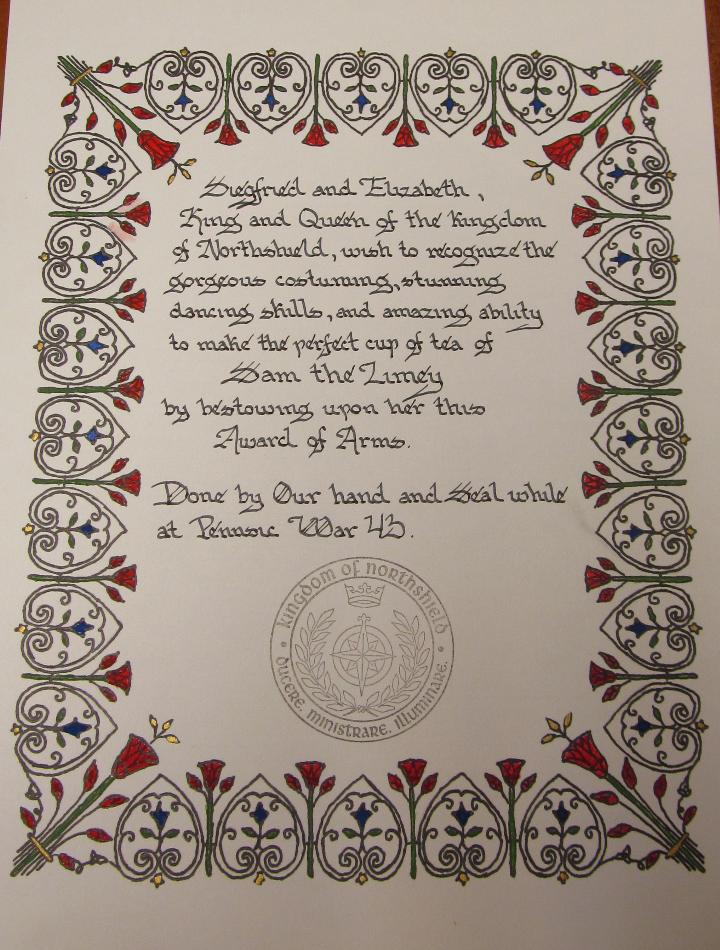 Siegfried and Elizabeth,
King and Queen of the Kingdom
of Northshield, wish to recognize the
gorgeous costuming, stunning
dancing skills, and amazing ability
to make the perfect cup of tea of
Sam the Limey
by bestowing upon her this
Award of Arms.
Done by Our hand and Seal while
at Pennsic War 43.
Kingdom of Northshield
Ducere. Ministrare. Illuminare.